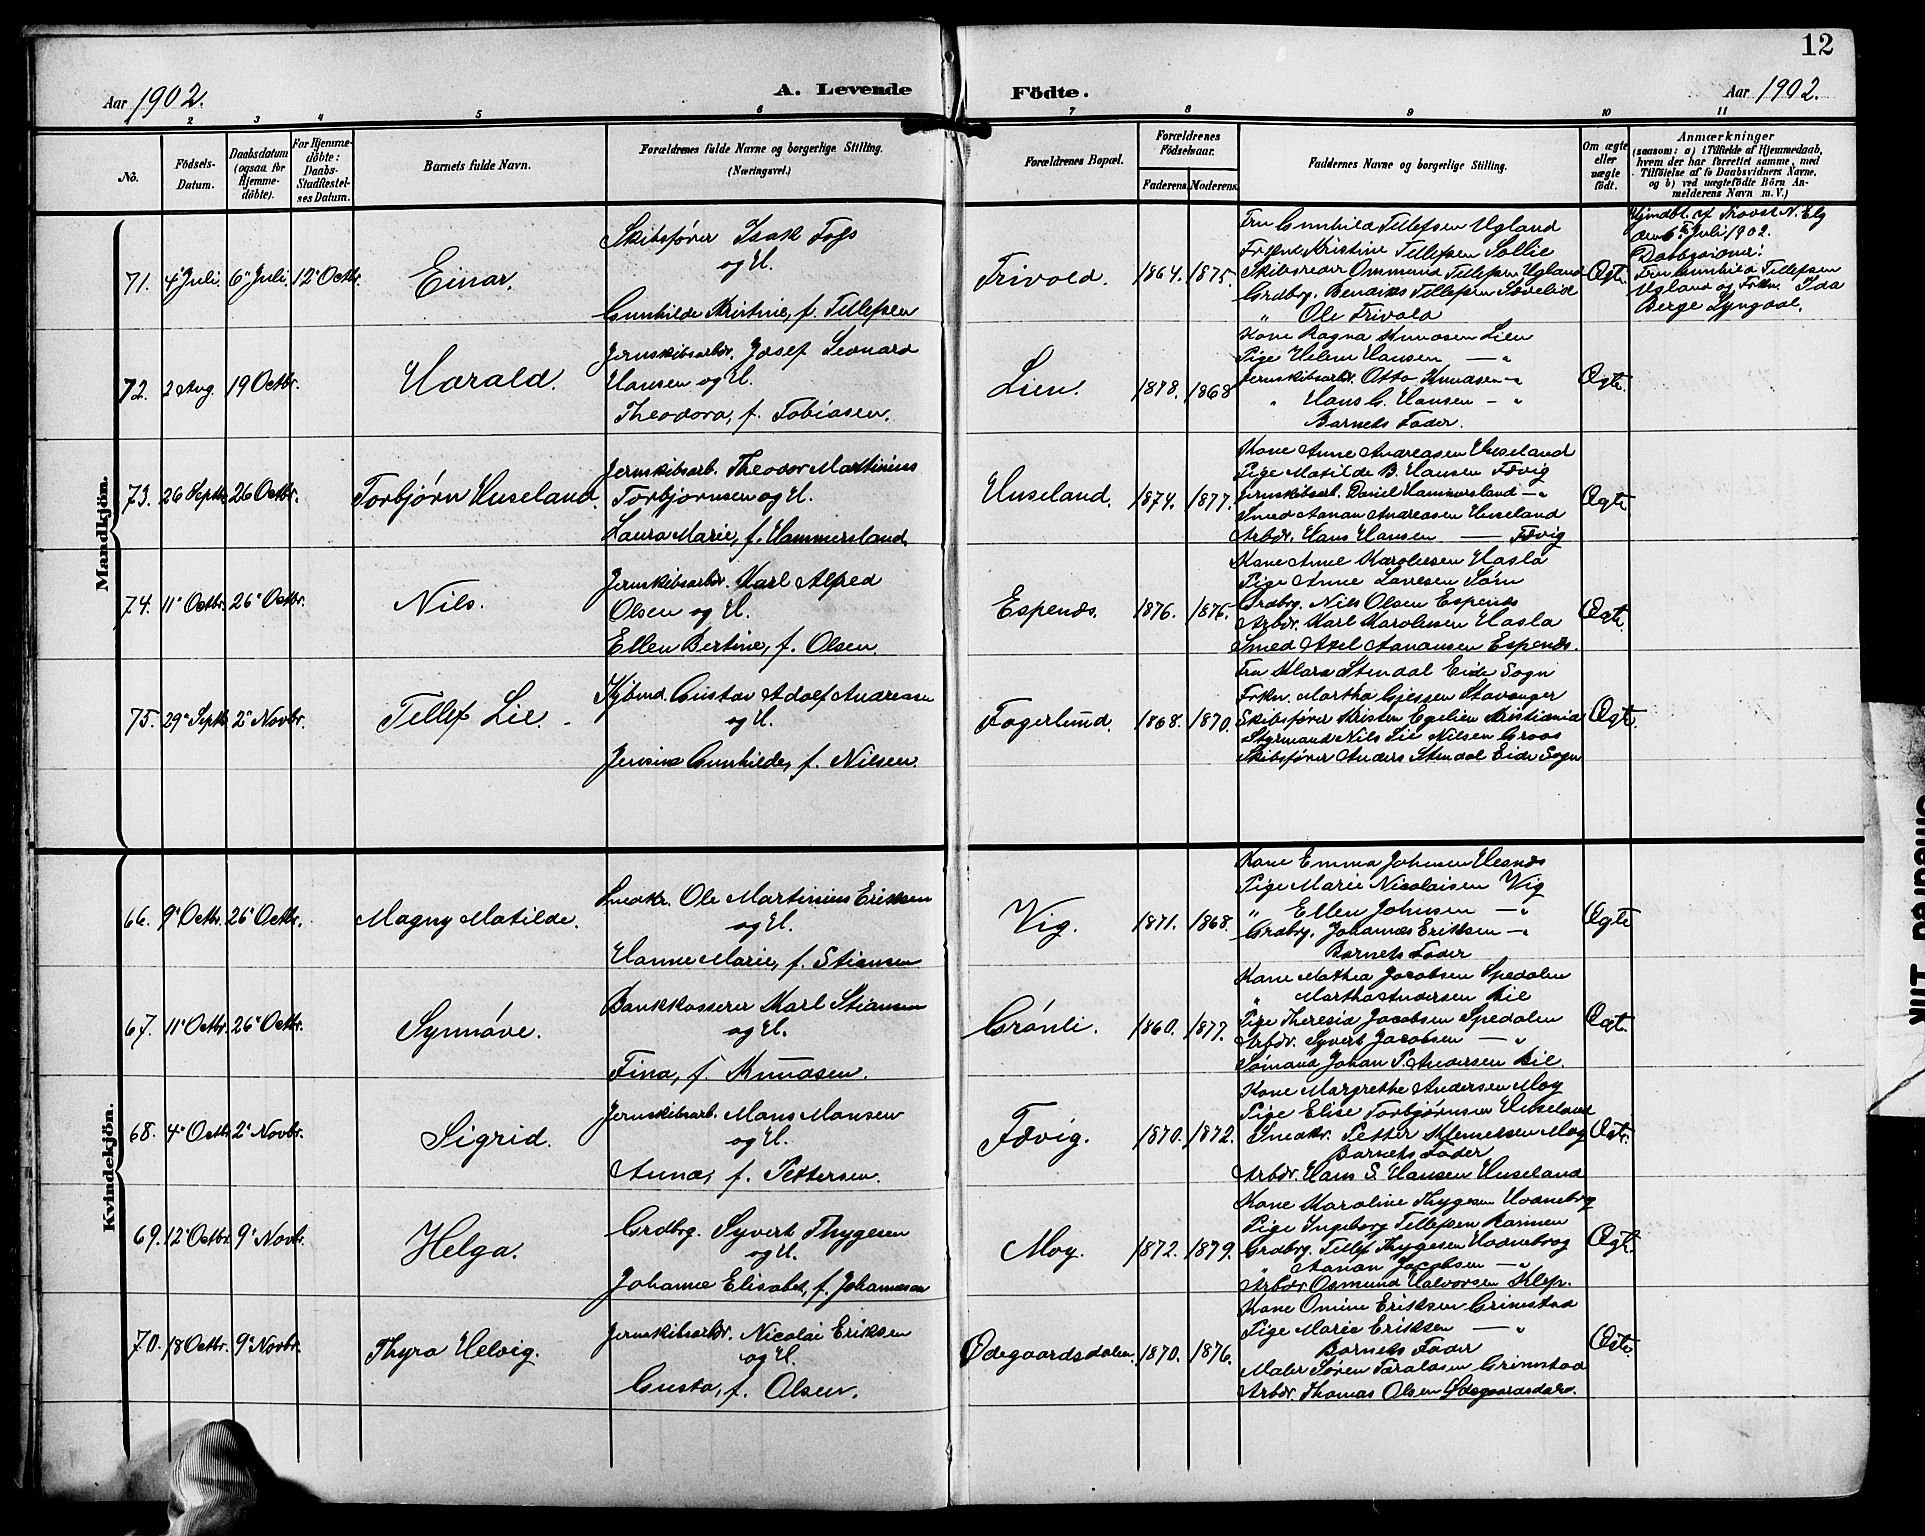 12
Aar 1902.
A. Levende Födte.
Aar 1902.
1 2 3 4 5 6 7 8 9 10 11
No.
Födsels-Datum.
Daabsdatum (ogsaa for Hjemme-döbte).
For Hjemme-döbte: Daabs-Stadfæstel-ses Datum.
Barnets fulde Navn.
Forældrenes fulde Navne og borgerlige Stilling.
(Næringsvei.)
Forældrenes Bopæl.
Forældrenes Födselsaar.
Faderens. Moderens.
Faddernes Navne og borgerlige Stilling.
Om ægte eller uægte födt.
Anmærkninger
(saasom: a) i Tilfælde af Hjemmedaab,
hvem der har forrettet samme, med
Tilföielse af to Daabsvidners Navne,
og b) ved uægtefödte Börn An-
melderens Navn m. V.)
Mandkjön.
71. 4 Juli. 6 Juli. 12 Octbr. Einar.
Skibsfører Isak Fogs
og H.
Gunhilde Kristine, f. Tellefsen
Trivold. 1864. 1875.
Fru Gunhild Tellefsen Ugland
Frkn Kristine Tellefsen Sollie
Skibsreder Ommund Tellefsen Ugland
Grdbrg. Bendiks Tellefsen Sævelid
" Ole Trivold
Ægte.
Hjmdbt. af Provst N. Elg
den 6te Juli 1902.
Daabsvidner:
Fru Gunhild Tellefsen
Ugland og Frkn. Ida
Berge Lyngdal.
72. 2 Aug. 19 Octbr. Harald.
Jernskibsarbdr. Josef Leonard
Hansen og H.
Theodora, f. Tobiasen.
Lien. 1878. 1868
Kone Ragna Knudsen Lien
Pige Helene Hansen — "
Jernskibsarbdr. Otto Knudsen — "
" Hans G. Hansen — "
Barnets Fader.
Ægte.
73. 26 Septb. 26 Octbr. Torbjørn Huseland.
Jernskibsarb. Theodor Martinius
Torbjørnsen og H.
Laura Marie, f. Hammersland.
Huseland. 1874. 1877.
Kone Anne Andreasen Huseland
Pige Matilde B. Hansen Fævig
Jernskibsarb. Daniel Hammersland — "
Smed Aanan Andreasen Huseland
Arbdr. Hans Hansen — Fævig
Ægte
74. 11 Octbr. 26 Octbr. Nils.
Jernskibsarbdr. Karl Alfred
Olsen og H.
Ellen Bertine, f. Olsen.
Espenæs. 1876. 1875.
Kone Anne Karoliesen Hasla
Pige Anne Laresen Søm
Grdbrg. Nils Olsen Espenæs
Arbdr. Karl Karoliesen Hasla
Smed Axel Aanansen Espenæs.
Ægte.
75. 29 Septb. 2 Novbr. Tellef Lie.
Kjøbmd. Gustav Adolf Andreasen
og H.
Jensine Gunhilde, f. Nilsen.
Fagerlund. 1868. 1870.
Fru Klara Stendal Eide Sogn
Frkn. Martha Gjessen Stavanger
Skibsfører Kristen Egelien Kristiania
Styrmand Nils Lie Nilsen Groos
Skibsfører Anders Stendal Eide Sogn
Ægte.
Kvindekjön.
66. 9 Octbr. 26 Octbr. Magny Matilde.
Snedkr. Ole Martinius Eriksen
og H.
Hanne Marie, f. Stiansen
Vig. 1871. 1868.
Kone Emma Johnsen Hesnæs
Pige Marie Nicolaisen Vig
" Ellen Johnsen — "
Grdbrg. Johannes Eriksen — "
Barnets Fader
Ægte
67. 11 Octbr. 26 Octbr. Synnøve.
Bankkasserer Karl Stiansen
og H.
Fina, f. Knudsen.
Grønli. 1860. 1877.
Kone Mathea Jacobsen Spedalen
" Martha Andersen Bie
Pige Theresia Jacobsen Spedalen
Arbdr. Syvert Jacobsen — "
Sømand Johan P. Andersen Bie.
Ægte.
68. 4 Octbr. 2 Novbr. Sigrid.
Jernskibsarb. Mons Monsen
og H.
Anna, f. Pettersen.
Fævig. 1870. 1872.
Kone Margrethe Andersen Moy
Pige Elise Torbjørnsen Huseland
Snedkr. Petter Klemetsen Moy
Barnets Fader
Arbdr. Hans S. Hansen Huseland
Ægte.
69. 12 Octbr. 9 Novbr. Helga.
Grdbrg. Syvert Thygesen
og H.
Johanne Elisabet, f. Johannesen
Moy. 1872. 1879.
Kone Karoline Thygesen Hodnebrog
Pige Ingeborg Tellefsen Rannen
Grdbrg. Tellef Thygesen Hodnebrog
" Aanan Jacobsen — "
Arbdr. Osmund Halvorsen Klep.
Ægte.
70. 18 Octbr. 9 Novbr. Thyra Helvig.
Jernskibsarbdr. Nicolai Eriksen
og H.
Gusta, f. Olsen.
Ødegaardsdalen. 1870. 1876.
Kone Omine Eriksen Grimstad
Pige Marie Eriksen — "
Barnets Fader
Maler Søren Taraldsen Grimstad
Arbdr. Thomas Olsen Ødegaardsdalen.
Ægte.